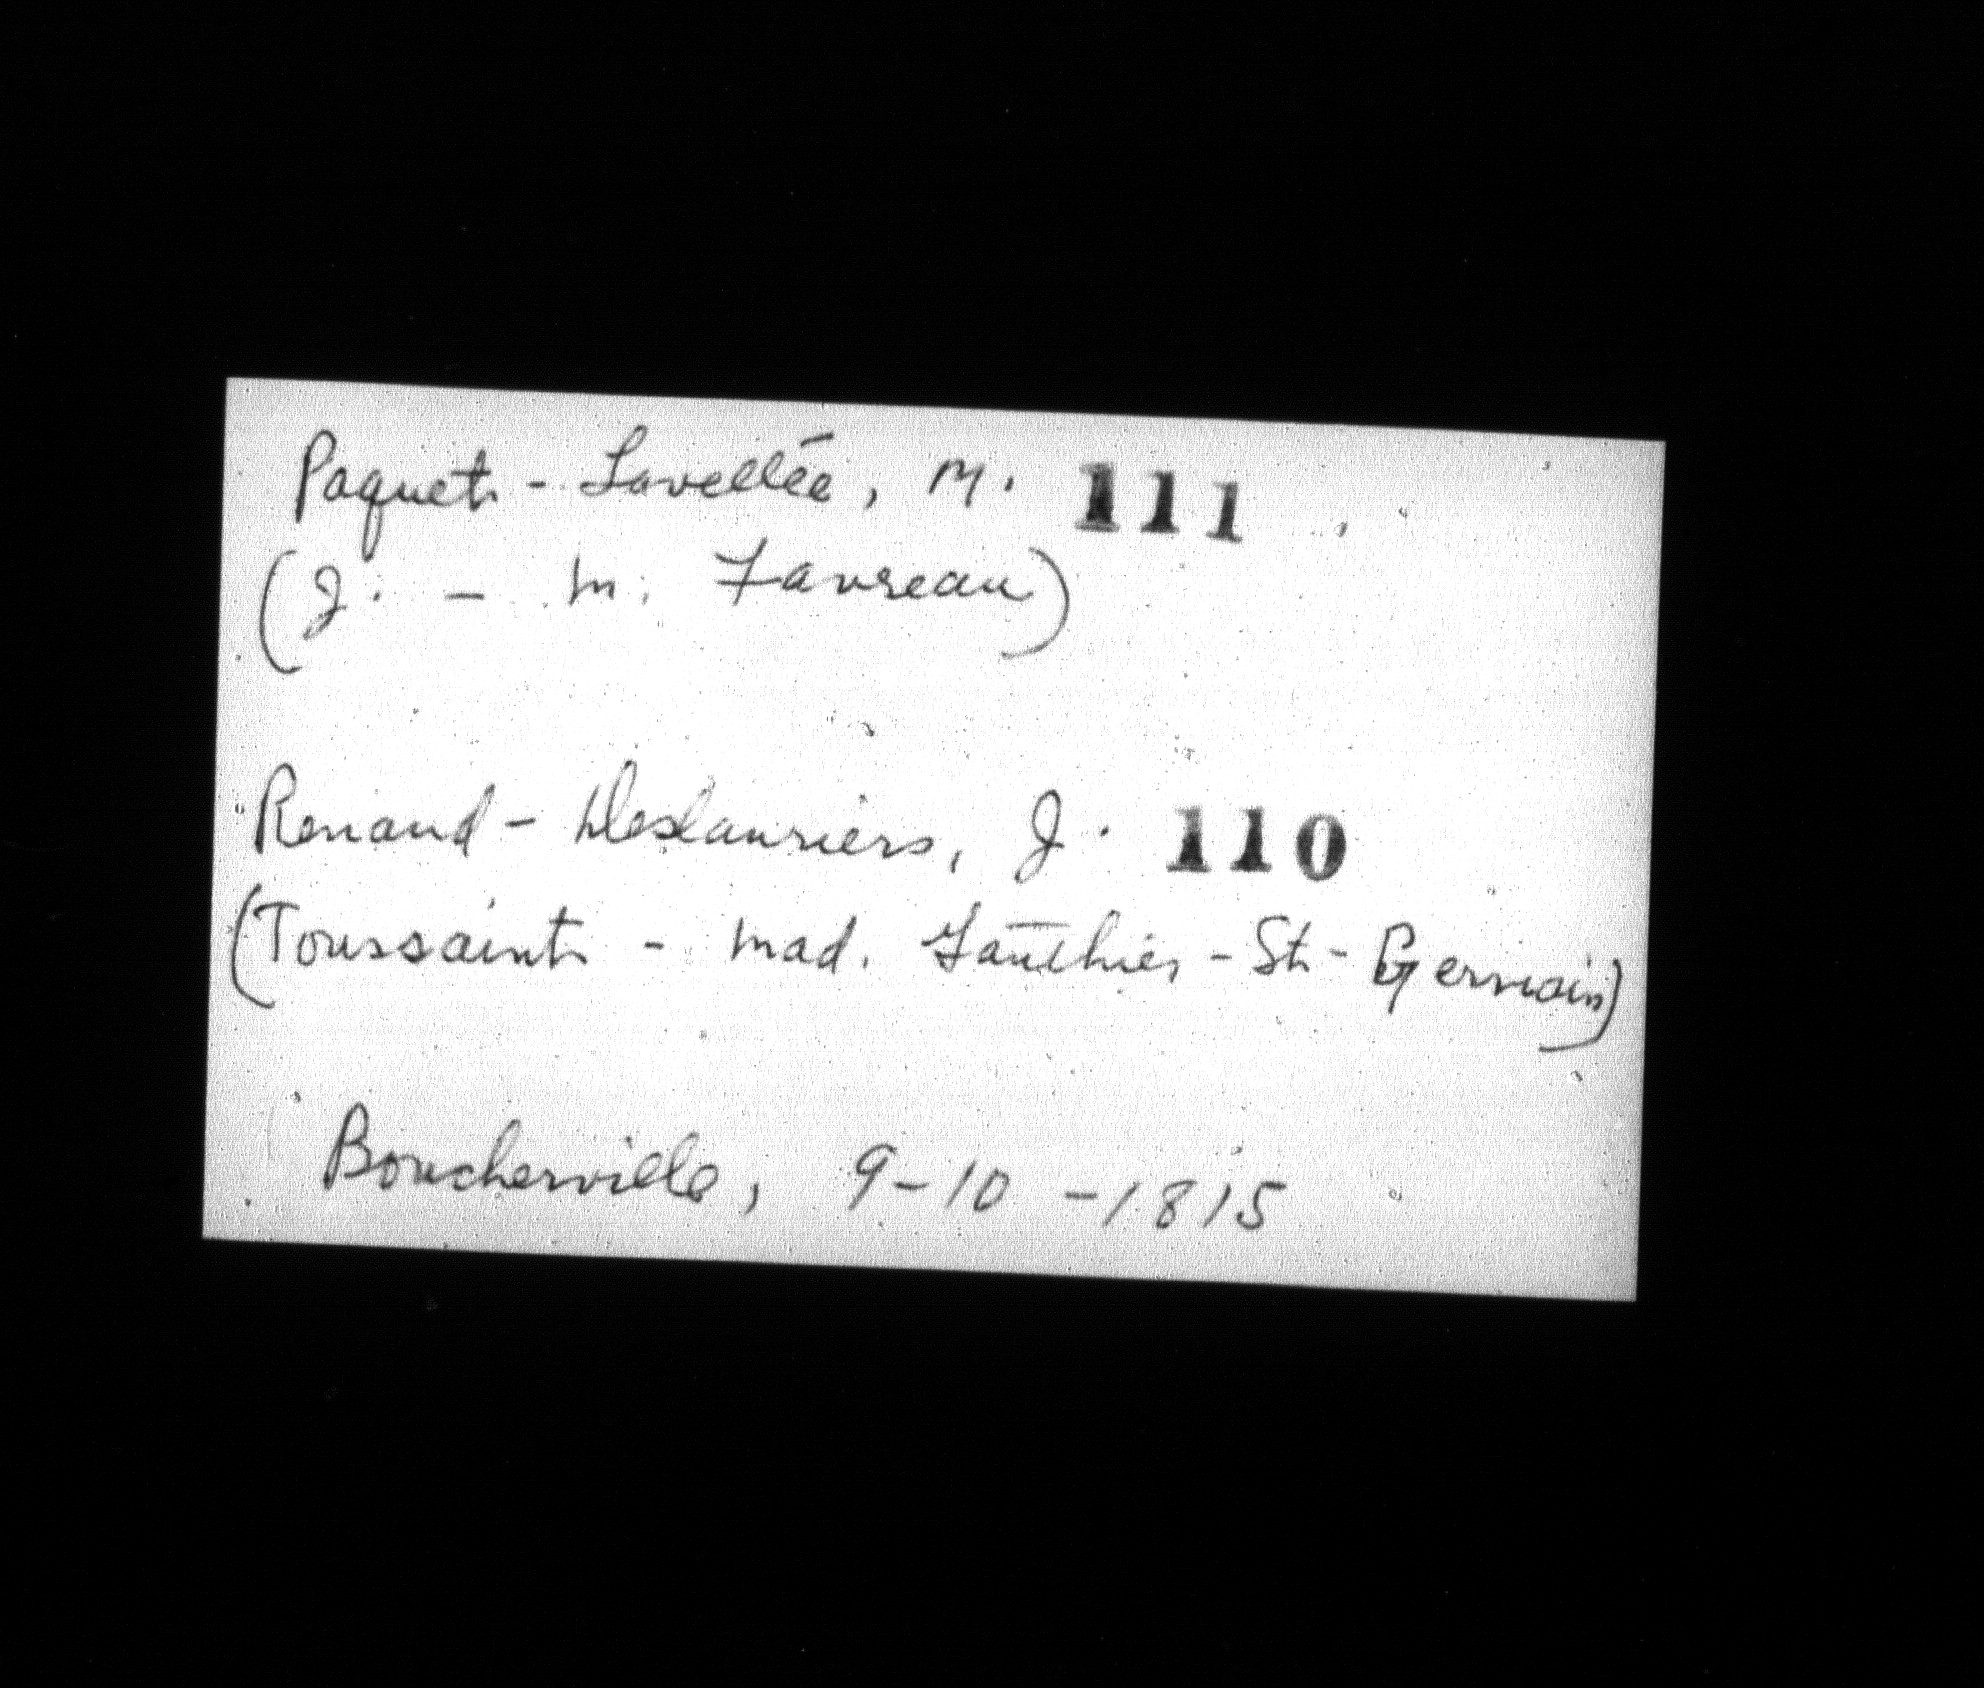 Paquet - Lavellée, M. 111
(J. - M. Favreau)
Renaud - Deslauriers, J. 110
(Toussaint - Mad. Gauthier - St - Germain)
Boucherville, 9-10-1815